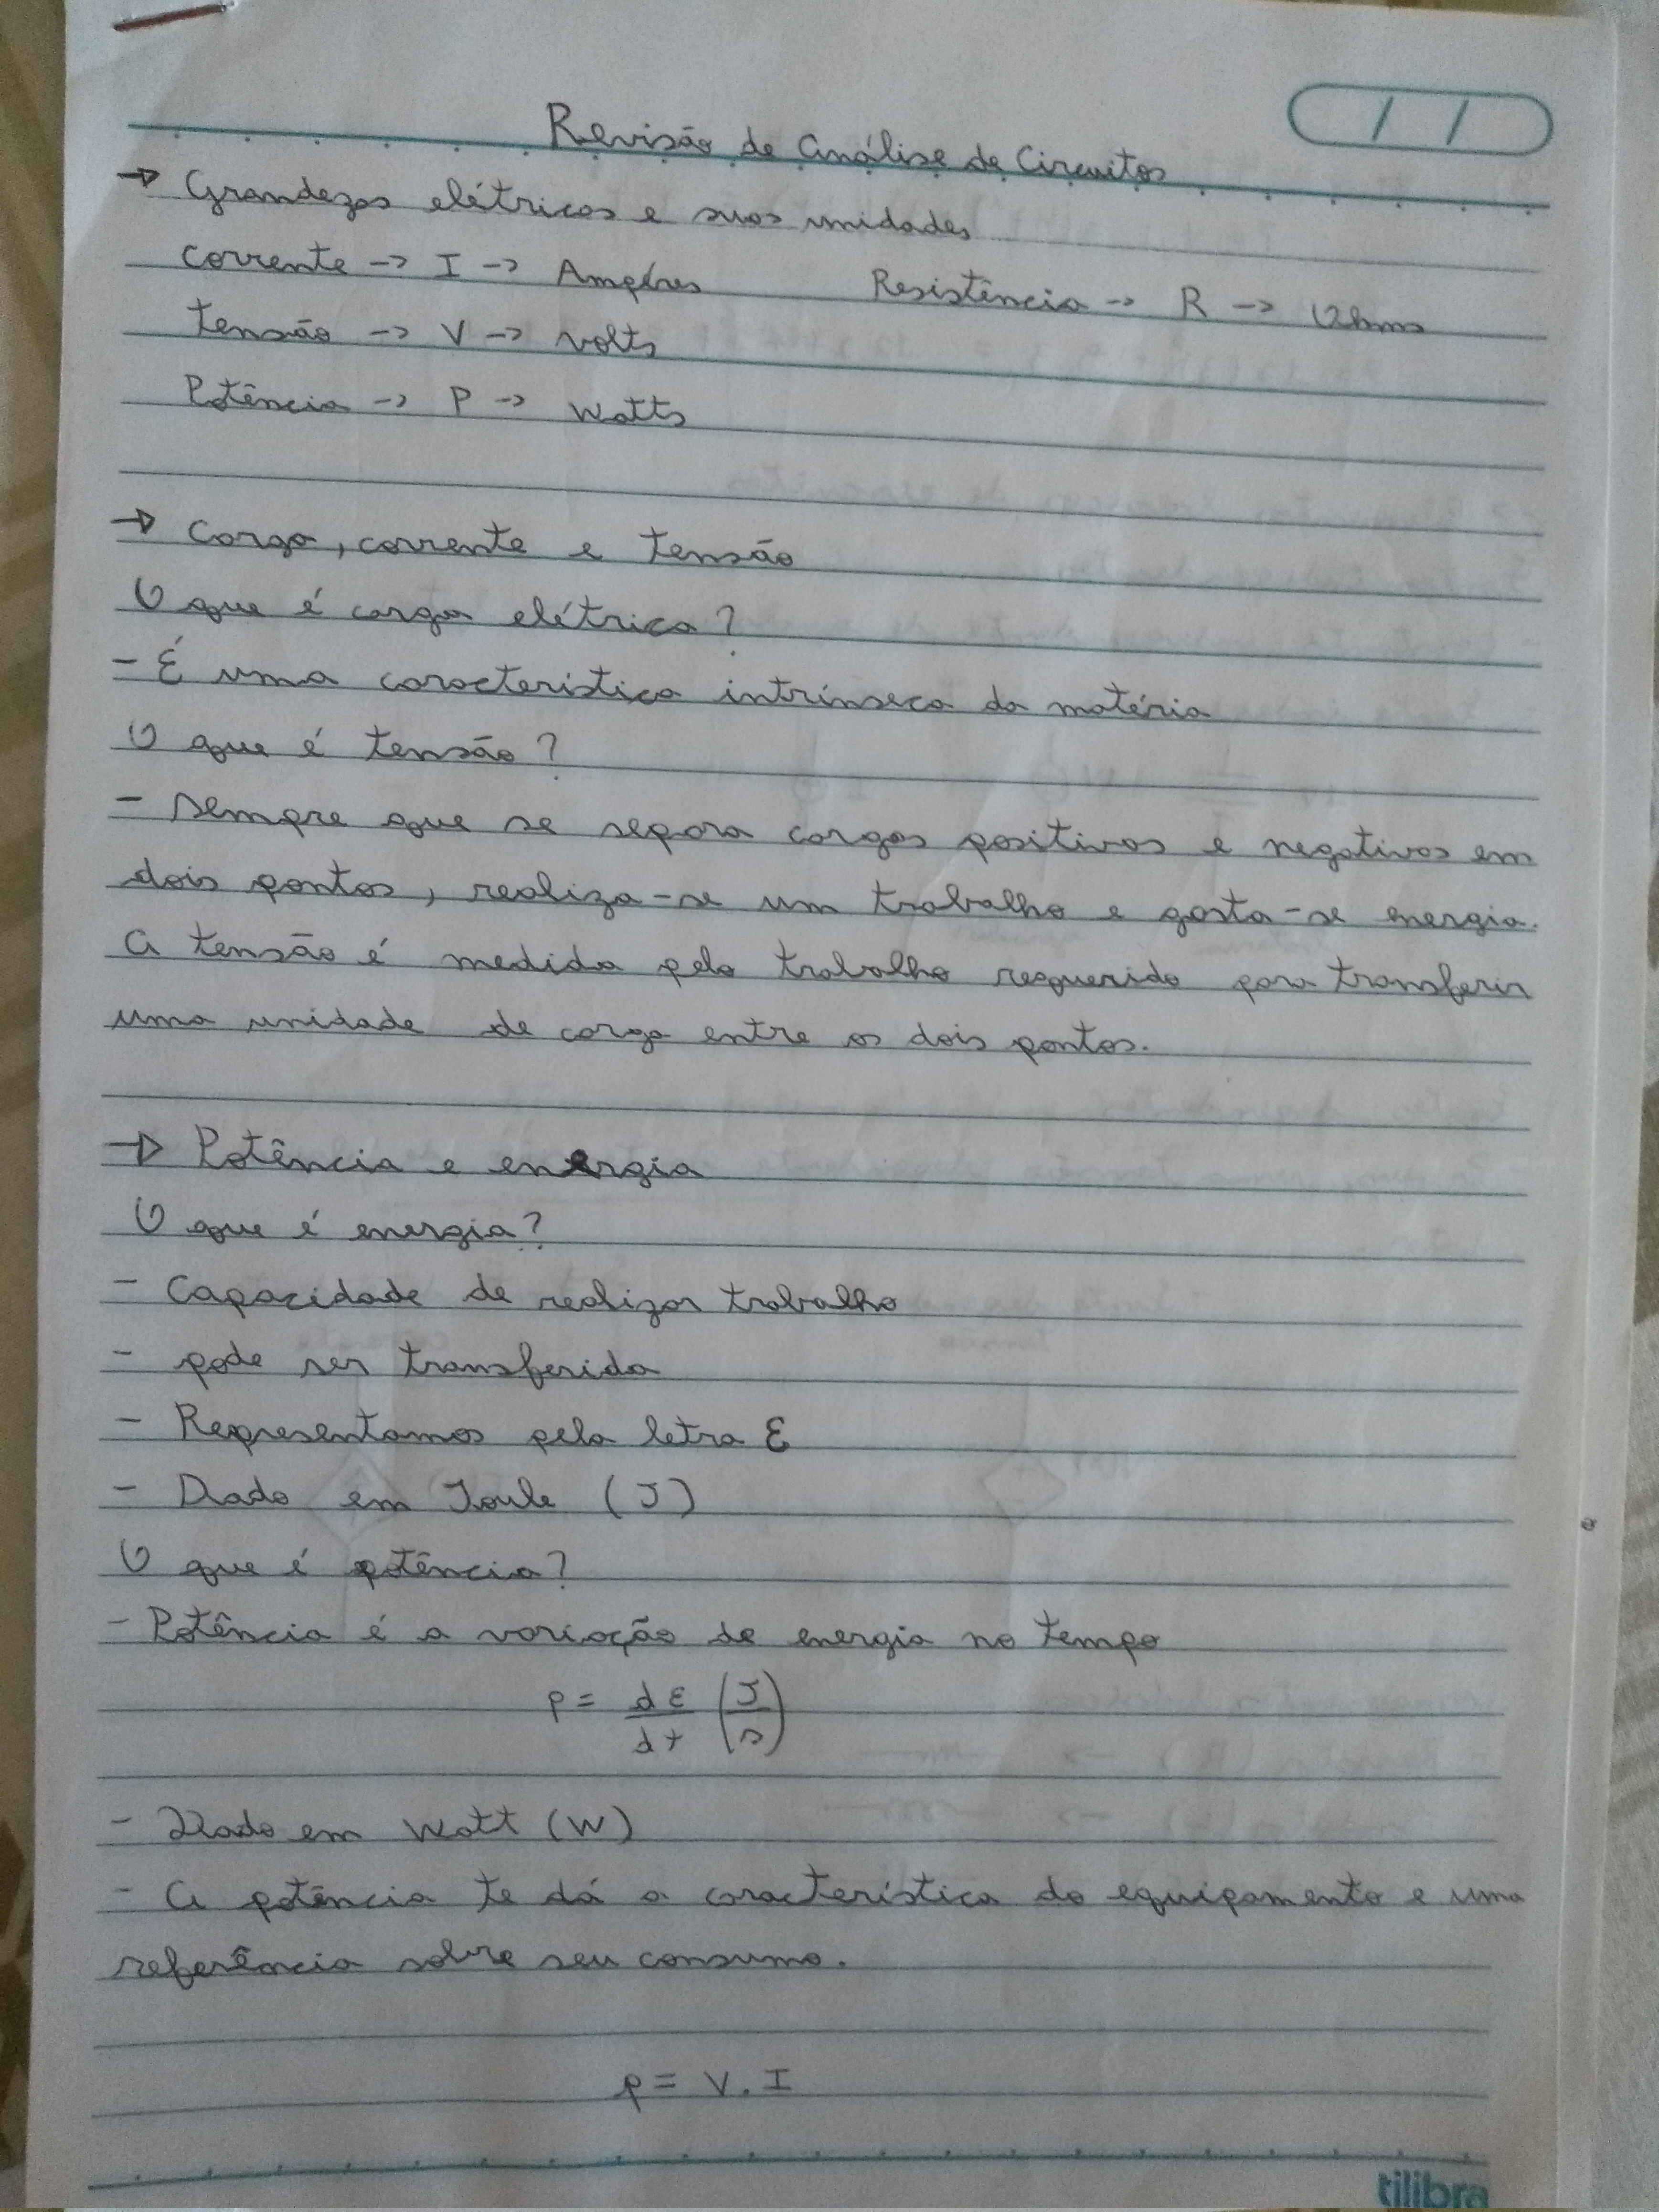 Revisão de Análise de Circuitos
→ Grandezas elétricas e suas unidades
corrente -> I -> Ampéres Resistência -> R -> Ohms
tensão -> V -> volts
Potência -> P -> Watts
→ Carga, corrente e tensão
O que é carga elétrica?
- É uma característica intrínseca da matéria
O que é tensão?
- sempre que se separa cargas positivas e negativas em
dois pontos, realiza-se um trabalho e gasta-se energia.
A tensão é medida pelo trabalho requerido para transferir
uma unidade de carga entre os dois pontos.
→ Potência e energia
O que é energia?
- Capacidade de realizar trabalho
- pode ser transferida
- Representamos pela letra ε
- Dado em Joule (J)
O que é potência?
- Potência é a variação de energia no tempo
P = dε/dt (J/s)
- Dado em Watt (W)
- A potência te dá a característica do equipamento e uma
referência sobre seu consumo.
p = V . I
tilibra